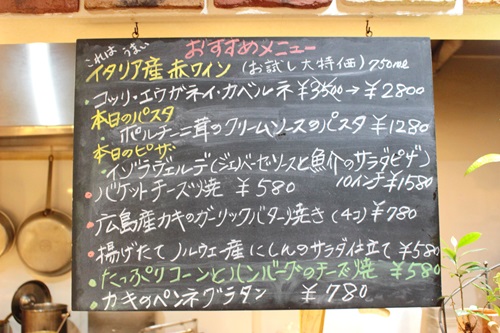 これは うまい
おすすめメニュー
イタリア産 赤ワイン (お試し大特価) 750ml
・コッリ・エウガネイ・カベルネ ¥3500→¥2800
本日のパスタ
・ポルチーニ茸のクリームソースのパスタ ¥1280
本日のピザ
・インゾラヴェルデ(ジェノベーゼソースと魚介のサラダピザ)
10インチ ¥1580
・バケットチーズ焼 ¥580
・広島産カキのガーリックバター焼き(4コ) ¥780
・揚げたてノルウェー産にしんのサラダ仕立て ¥580
・たっぷりコーンとハンバーグのチーズ焼 ¥580
・カキのペンネグラタン ¥780